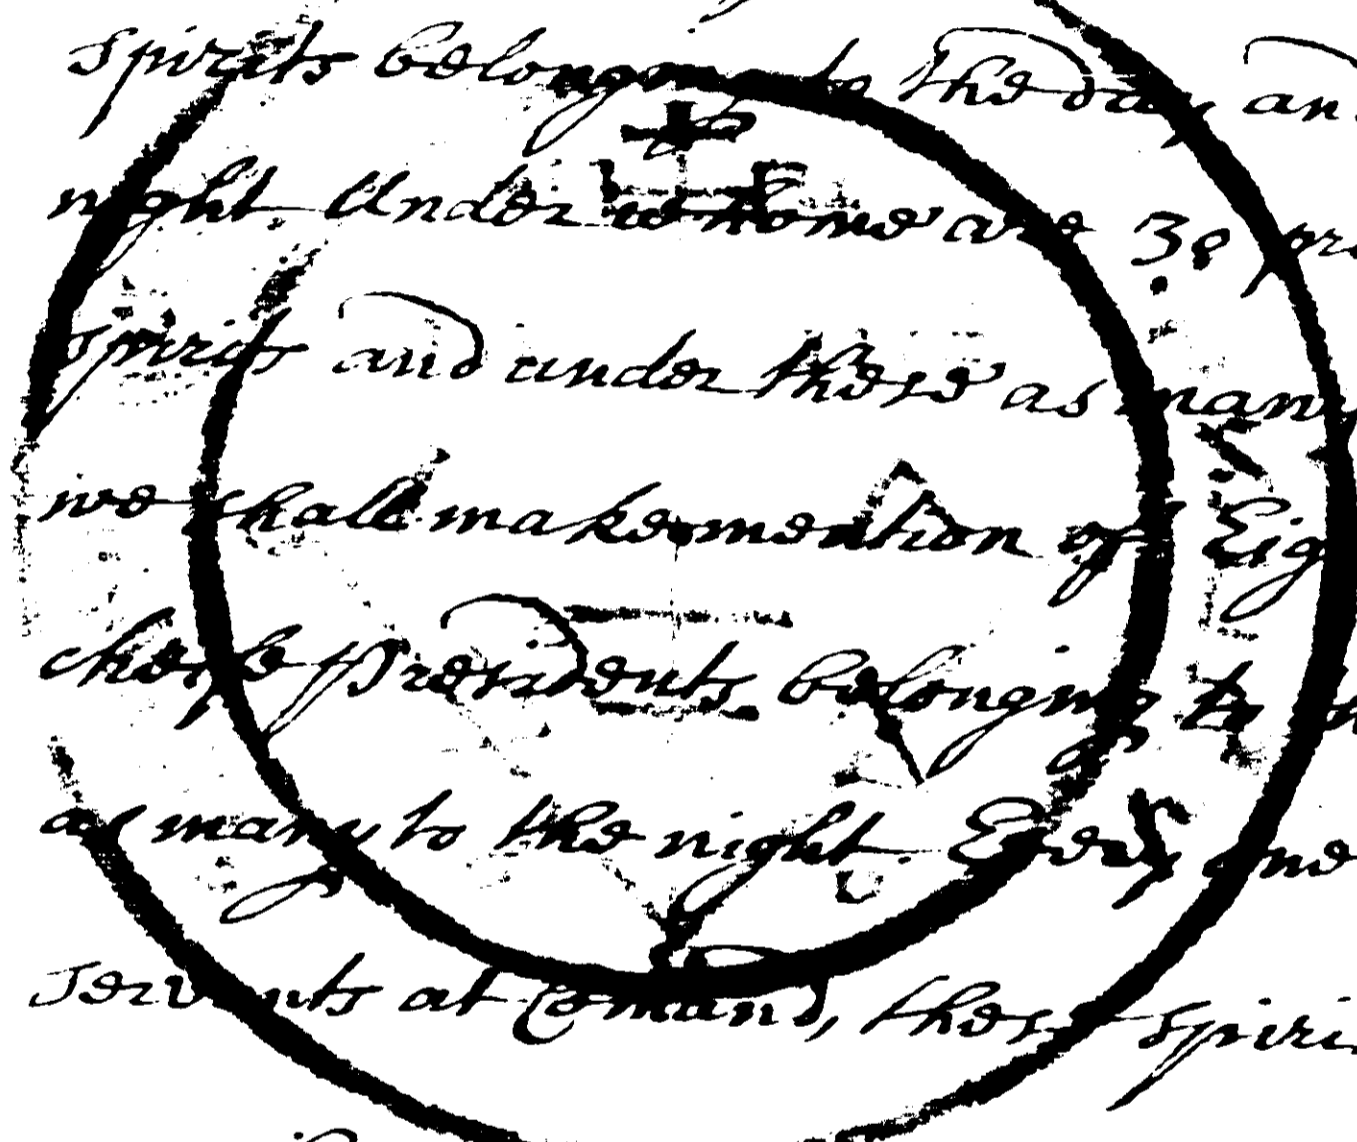 spirits belonging to the day, an
night. Under whome are 30 pr
spirits and under these as many
we shall make mention of Eig
cheife Presidents belonging to th
as many to the night. Every one
servants at Comand, these spiri